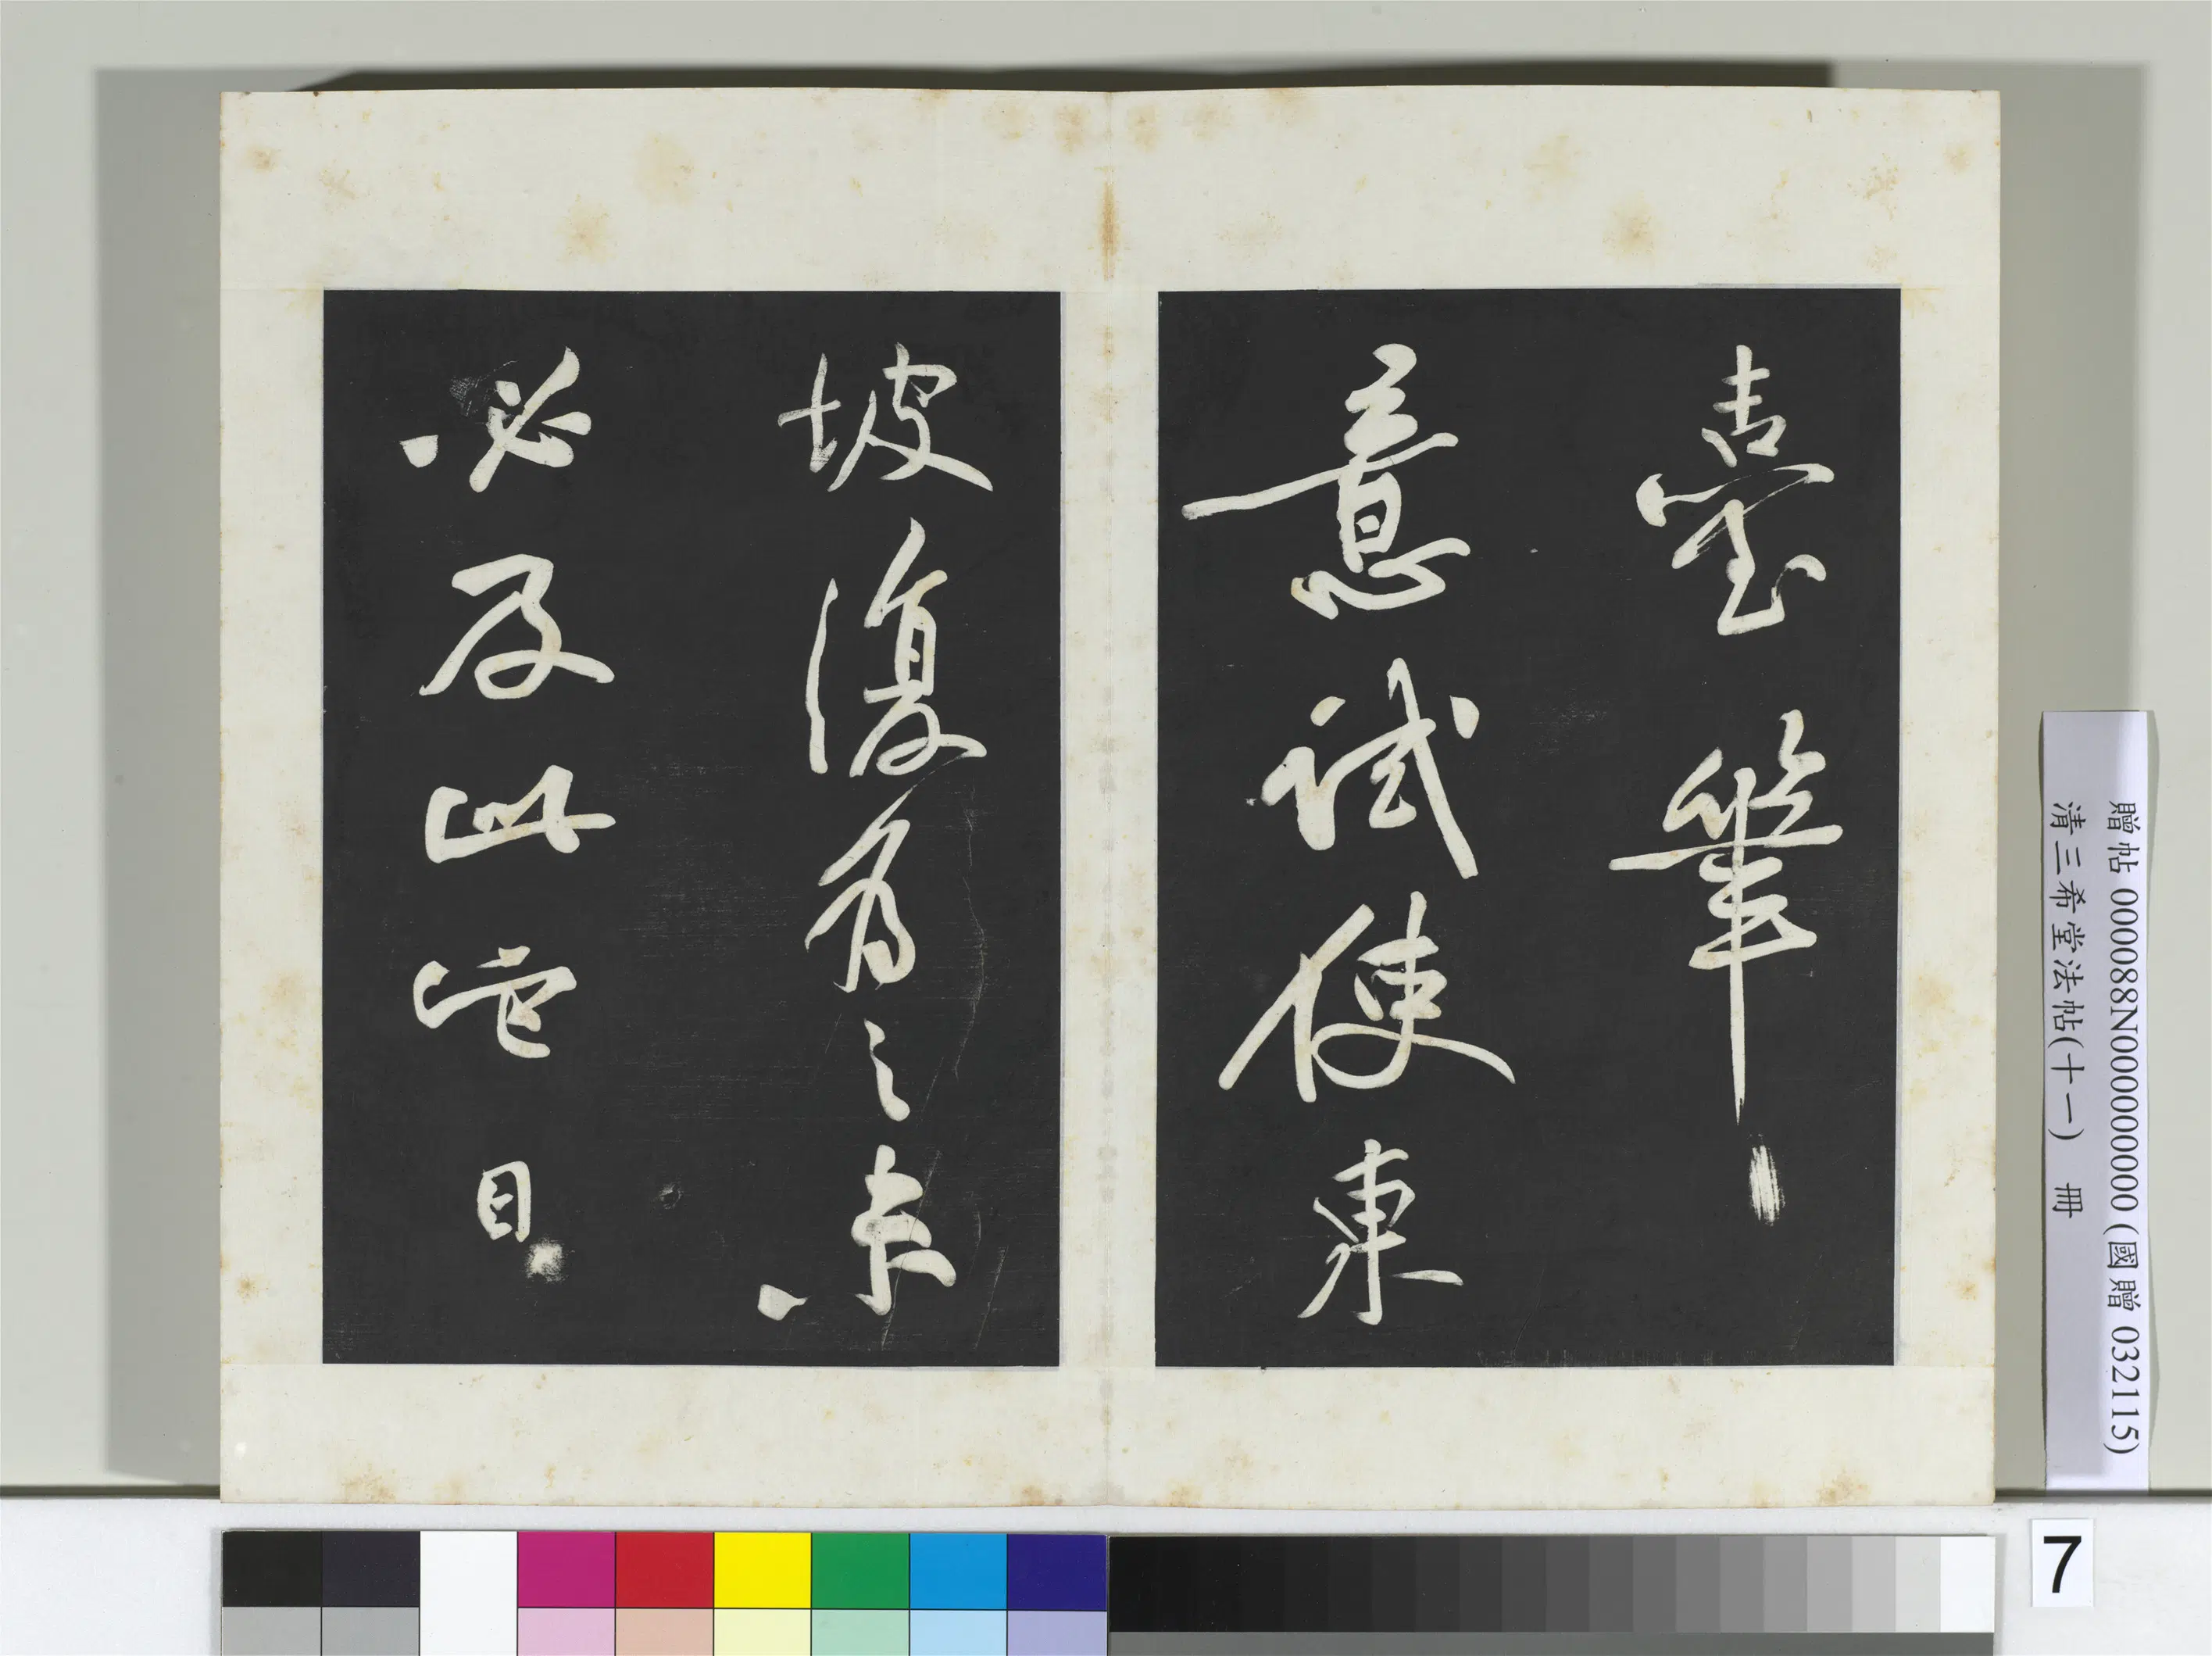 臺筆
意試使東
坡復為之未
必及此它日
贈帖 000088N000000000 (國贈 032115)
清三希堂法帖(十一) 冊
7